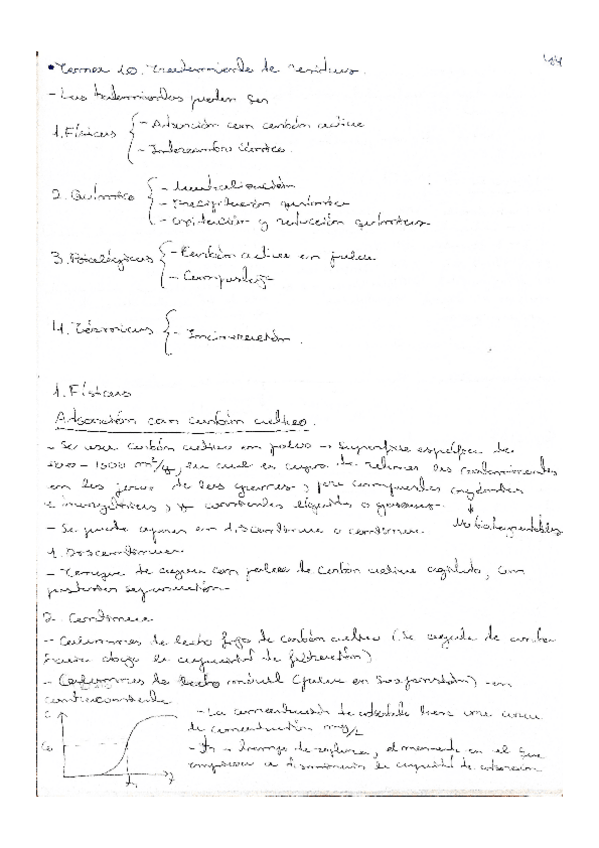 • Tema 10. Tratamiento de residuos.
- Los tratamientos pueden ser
1. Físicos { - Adsorción con carbón activo
- Intercambio iónico.
2. Químico { - Neutralización
- Precipitación química
- oxidación y reducción química.
3. Biológicos { - Carbón activo en polvo
- Compostaje
4. Térmicos { - Incineración.
1. Físicos
Adsorción con carbón activo.
- Se usa carbón activo en polvo → superficie específica de
- 1500 m²/g, el cual es capaz de retener los contaminantes
en los poros de los granos, para compuestos orgánicos
e inorgánicos, y corrientes líquidas o gaseosas.
No biodegradables
- Se puede operar en discontinuo o continuo.
1. Discontinuo
- Tanque de agua con polvo de carbón activo agitado, con
posterior separación.
2. Continuo
- Columnas de lecho fijo de carbón activo (Se carga de arriba
hacia abajo la capacidad de filtración)
- Columnas de lecho móvil (polvo en suspensión) - en
contracorriente
C
Co
- La concentración de adsorbato tiene una
de concentración mg/L
- tiempo de ruptura, el momento en el que
empieza la disminución de capacidad de adsorción